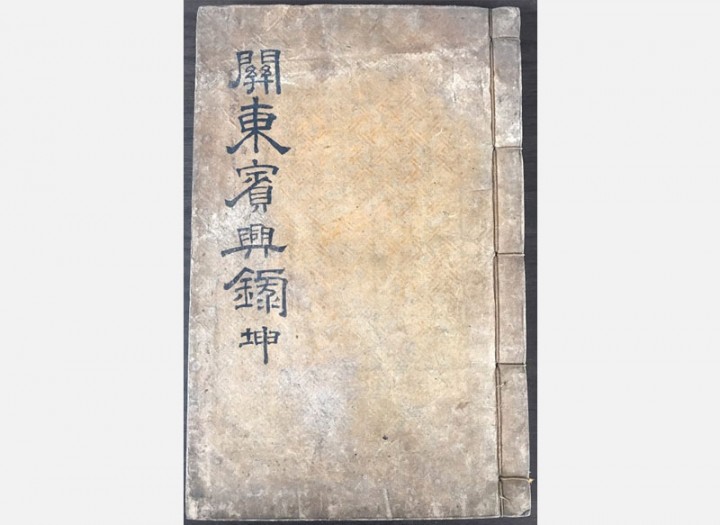 關東賓興錄 坤